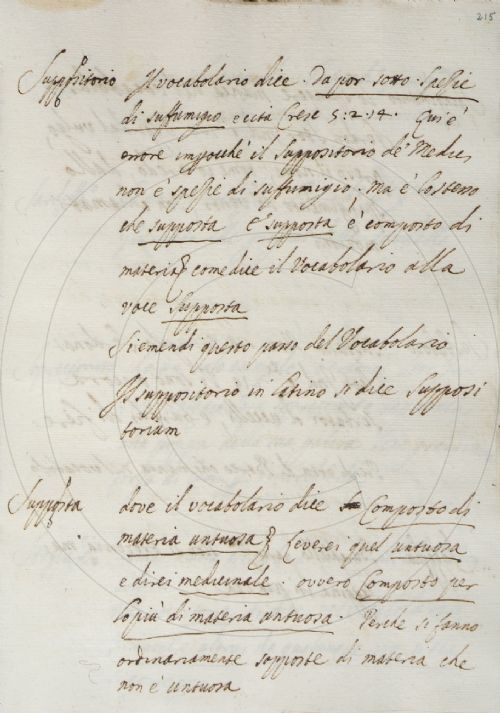 215
Suppositorio Il vocabolario dice. Da por sotto. Spesie
di suffumigio e cita Cresc 5:2.14. Qui è
errore impochè il suppositorio de' Medici
non è spesie di suffumigio. Ma è lo stesso
che supposta e supposta è composto di
materia come dice il Vocabolario alla
voce Supposta
Si emendi questo passo del Vocabolario
Il suppositorio in latino si dice supposi
torium
Supposta dove il vocabolario dice Composto di
materia untuosa leverei quel untuosa
e direi medicinale. ovvero Composto per
lo più di materia untuosa. Perche si fanno
ordinariamente sopposte di materia che
non è untuosa